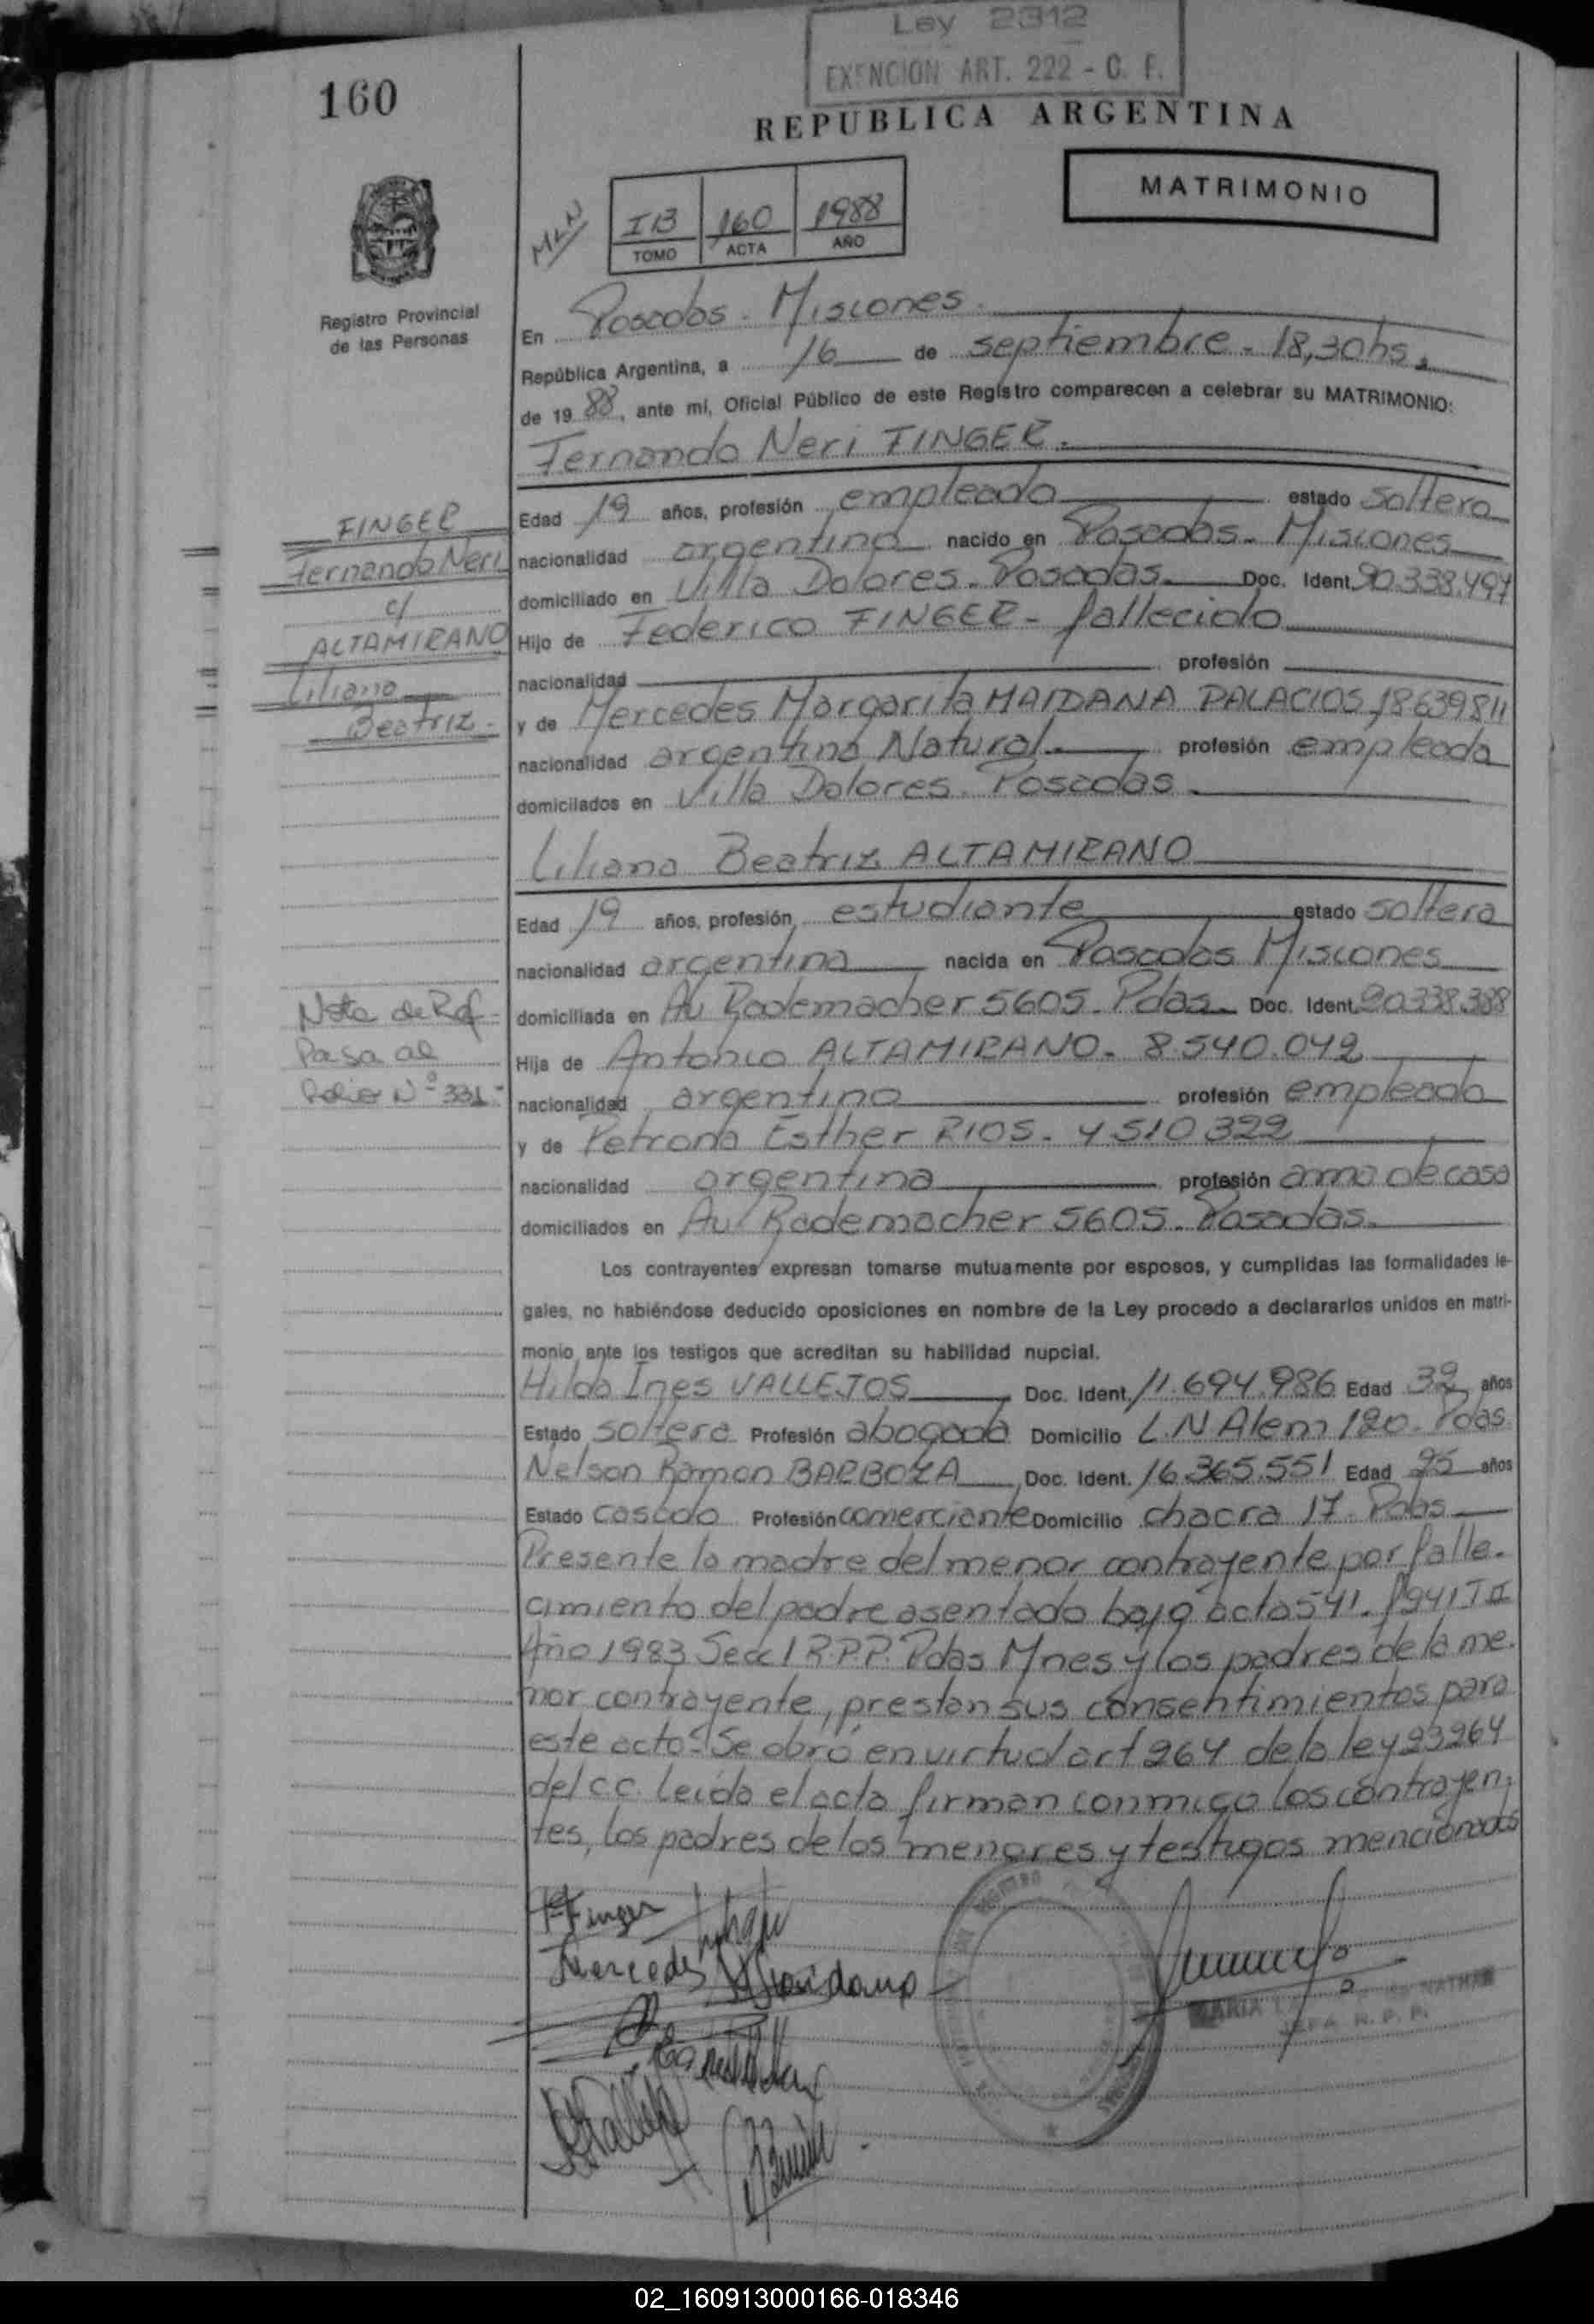 Ley 2312
EXENCION ART. 222 - C. F.
160
REPUBLICA ARGENTINA
MATRIMONIO
MLN
IB 160 1988
TOMO ACTA AÑO
Registro Provincial
de las Personas
En Posadas. Misiones.
República Argentina, a 16 de septiembre - 18,30hs.
de 1988, ante mí, Oficial Público de este Registro comparecen a celebrar su MATRIMONIO:
Fernando Neri FINGER.
FINGER
Fernando Neri
c/
ALTAMIRANO
Liliana
Beatriz.
Edad 19 años, profesión empleado estado soltero
nacionalidad argentino nacido en Posadas. Misiones
domiciliado en Villa Dolores. Posadas. Doc. Ident. 20.338.497
Hijo de Federico FINGER - fallecido
nacionalidad profesión
y de Mercedes Margarita MAIDANA PALACIOS, 18639811
nacionalidad argentina Natural. profesión empleada
domicilados en Villa Dolores. Posadas.
Liliana Beatriz ALTAMIRANO
Edad 19 años, profesión estudiante estado soltera
nacionalidad argentina nacida en Posadas Misiones
domiciliada en Av Rademacher 5605. Pdas. Doc. Ident. 20338388
Hija de Antonio ALTAMIRANO. 8.540.042
nacionalidad argentino profesión empleado
y de Petrona Esther RIOS. 4510322
nacionalidad argentina profesión ama de casa
domiciliados en Av Rademacher 5605. Posadas.
Nota de Ref -
Pasa al
Folio Nº 331-
Los contrayentes expresan tomarse mutuamente por esposos, y cumplidas las formalidades le-
gales, no habiéndose deducido oposiciones en nombre de la Ley procedo a declararlos unidos en matri-
monio ante los testigos que acreditan su habilidad nupcial.
Hilda Ines VALLEJOS Doc. Ident. 11.694.986 Edad 32 años
Estado soltera Profesión abogada Domicilio L.N Alem 120. Pdas.
Nelson Ramon BARBOZA Doc. Ident. 16.365.551 Edad 25 años
Estado casado Profesión comerciante Domicilio chacra 17. Pdas
Presente la madre del menor contrayente por falle-
cimiento del padre asentado bajo acta 541. f941 T II
Año 1983 Secc 1 R.P.P. Pdas Mnes y los padres de la me-
nor contrayente, prestan sus consentimientos para
este acto. Se obró en virtud art 264 de la ley 23264
del C.C. Leida el acta firman conmigo los contrayen-
tes, los padres de los menores y testigos mencionados
FFinger
Mercedes Maidana
MARIA NATHAN
JEFA R. P. P.
02_160913000166-018346